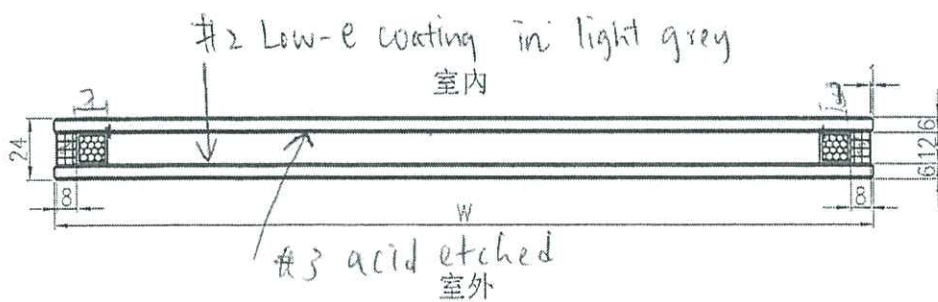 #2 Low-e coating in light grey
室内
24
6
12
6
8
8
W
#3 acid etched
室外